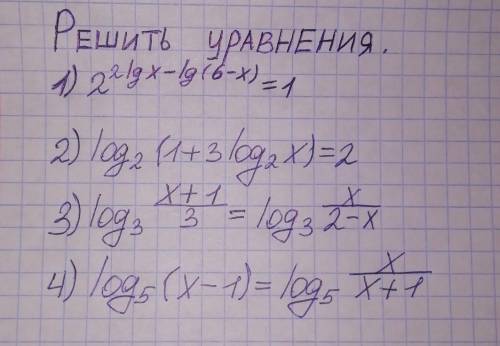 Решить уравнения.
1) 2^(2lgx-lg(6-x)) = 1
2) log₂(1+3log₂x)=2
3) log₃ (x+1)/3 = log₃ x/(2-x)
4) log₅(x-1) = log₅ x/(x+1)